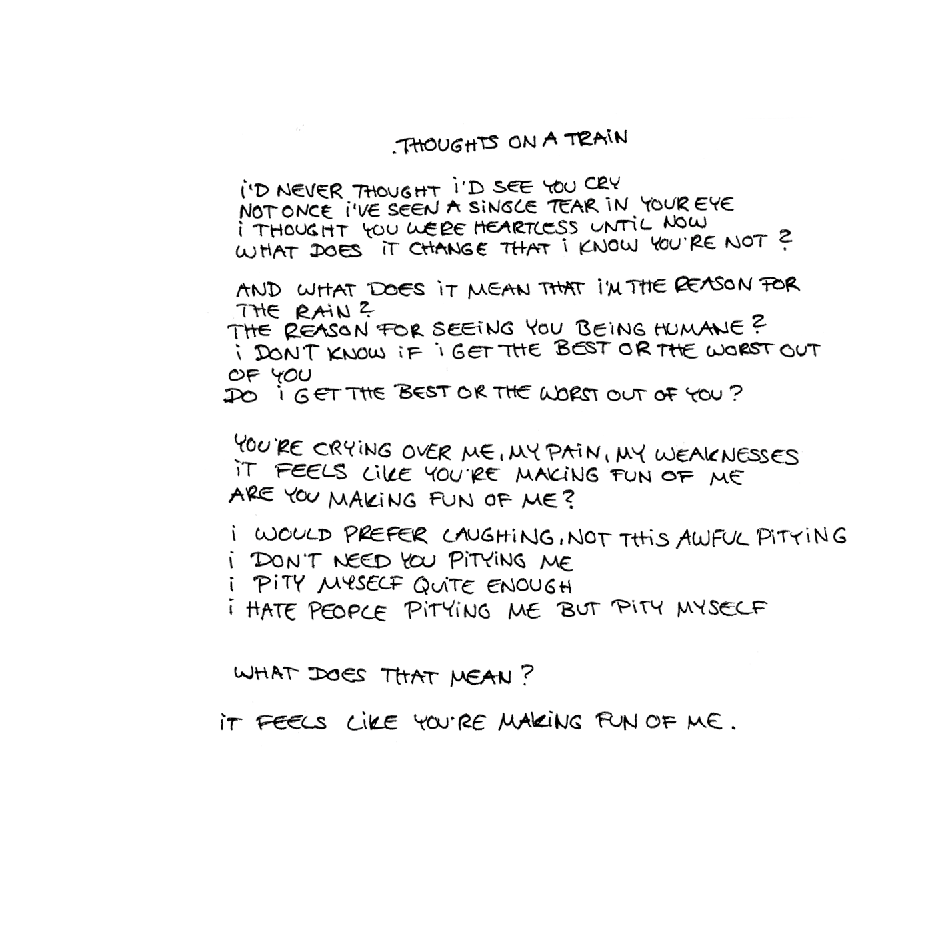 .THOUGHTS ON A TRAiN
i'D NEVER THOUGHT i'D SEE YOU CRY
NOT ONCE i'VE SEEN A SiNGLE TEAR IN YOUR EYE
i THOUGHT YOU WERE HEARTLESS UNTiL NOW
WHAT DOES iT CHANGE THAT i KNOW YOU'RE NOT?
AND WHAT DOES iT MEAN THAT i'M THE REASON FOR
THE RAiN?
THE REASON FOR SEEiNG YOU BEiNG HUMANE?
i DON'T KNOW iF i GET THE BEST OR THE WORST OUT
OF YOU
DO i GET THE BEST OR THE WORST OUT OF YOU?
YOU'RE CRYiNG OVER ME, MY PAiN, MY WEAKNESSES
iT FEELS LiKE YOU'RE MAKiNG FUN OF ME
ARE YOU MAKiNG FUN OF ME?
i WOULD PREFER LAUGHiNG, NOT THiS AWFUL PiTYiNG
i DON'T NEED YOU PiTYiNG ME
i PiTY MYSELF QUiTE ENOUGH
i HATE PEOPLE PiTYiNG ME BUT PiTY MYSELF
WHAT DOES THAT MEAN?
iT FEELS LiKE YOU'RE MAKiNG FUN OF ME.